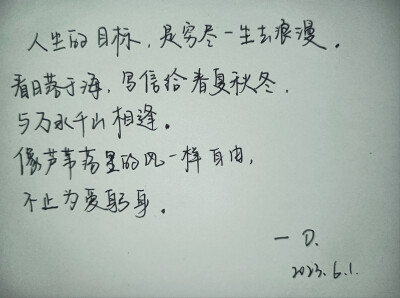 人生的目标，是穷尽一生去浪漫。
看日落于海，写信给春夏秋冬，
与万水千山相逢。
像芦苇荡里的风一样自由，
不止为爱躬身。
— D.
2023.6.1.